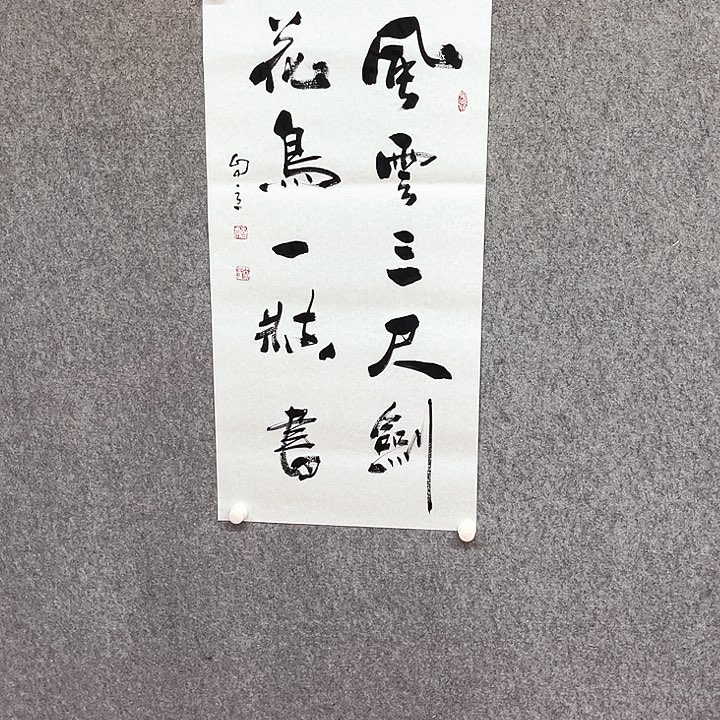 風雲三尺劍
花鳥一牀書